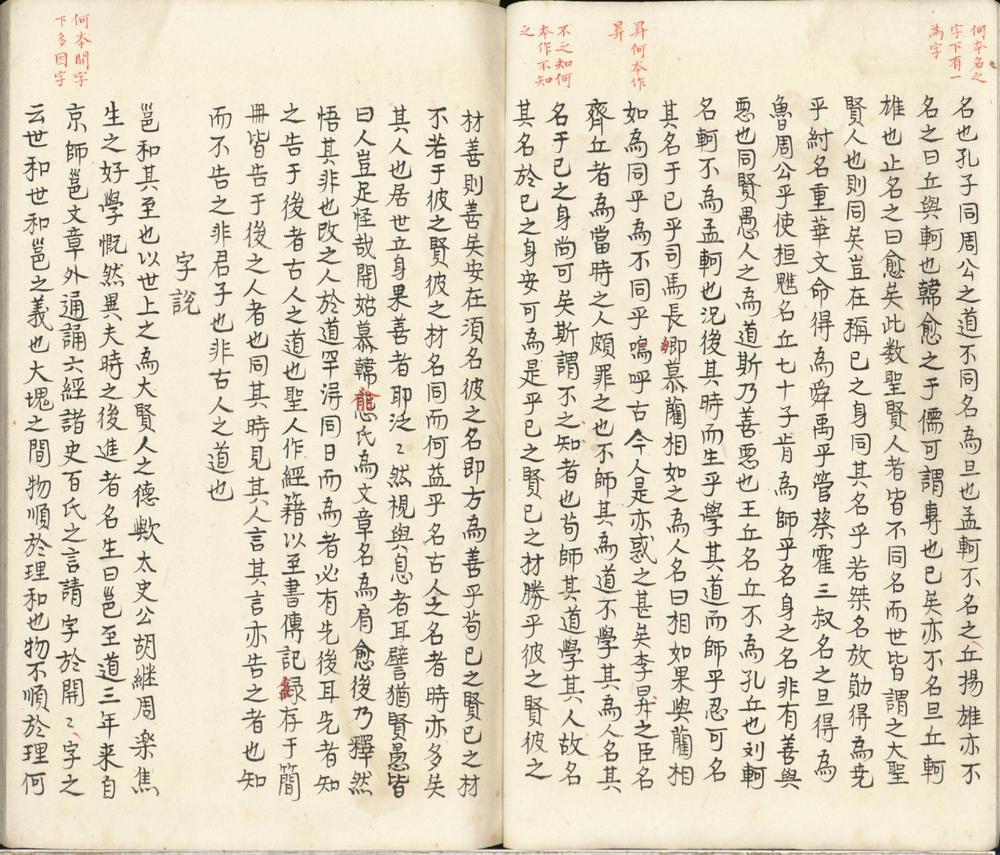 何本名之
字下有一
為字
昇何本作
昇
不之知何
本作不知
之
名也孔子同周公之道不同名為旦也孟軻不名之丘揚雄亦不
名之曰丘與軻也韓愈之于儒可謂專也已矣亦不名旦丘軻
雄也止名之曰愈矣此数聖賢人者皆不同名而世皆謂之大聖
賢人也則同矣豈在稱已之身同其名乎若桀名放勛得為尭
乎紂名重華文命得為舜禹乎管蔡霍三叔名之旦得為
魯周公乎使桓魋名丘七十子肯為師乎名身之名非有善與
悪也同賢愚人之為道斯乃善悪也王丘名丘不為孔丘也刘軻
名軻不為孟軻也況後其時而生乎學其道而師乎忍可名
其名于已乎司馬長卿慕藺相如之為人名曰相如果與藺相
如為同乎為不同乎嗚呼古今人是亦惑之甚矣李昇之臣名
齊丘者為當時之人頗罪之也不師其為道不學其為人名其
名于已之身尚可矣斯謂不之知者也茍師其道學其人故名
其名於已之身安可為是乎已之賢已之材勝乎彼之賢彼之
材善則善矣安在須名彼之名即方為善乎茍已之賢已之材
不若于彼之賢彼之材名同而何益乎名古人之名者時亦多矣
其人也居世立身果善者耶泛〻然視與息者耳譬猶賢愚皆
曰人豈足怪哉開始慕韓愈氏為文章名為肩愈後乃釋然
悟其非也改之人於道罕淂同日而為者必有先後耳先者知
之告于後者古人之道也聖人作經籍以至書傳記録存于簡
冊皆告于後之人者也同其時見其人言其言亦告之者也知
而不告之非君子也非古人之道也
字說
邕和其至也以世上之為大賢人之德歟太史公胡継周楽焦
生之好學慨然異夫時之後進者名生曰邕至道三年来自
京師邕文章外通誦六經諸史百氏之言請字於開〻字之
云世和世和邕之義也大塊之間物順於理和也物不順於理何
何本開字
下多因字